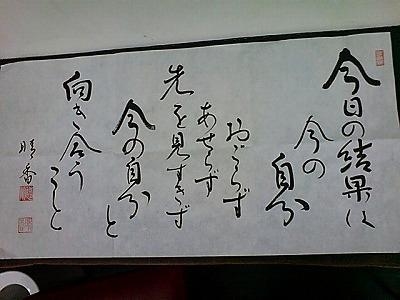 今日の結果は
今の
自分
おごらず
あせらず
先を見すぎず
今の自分と
向き合う
こと
晴香